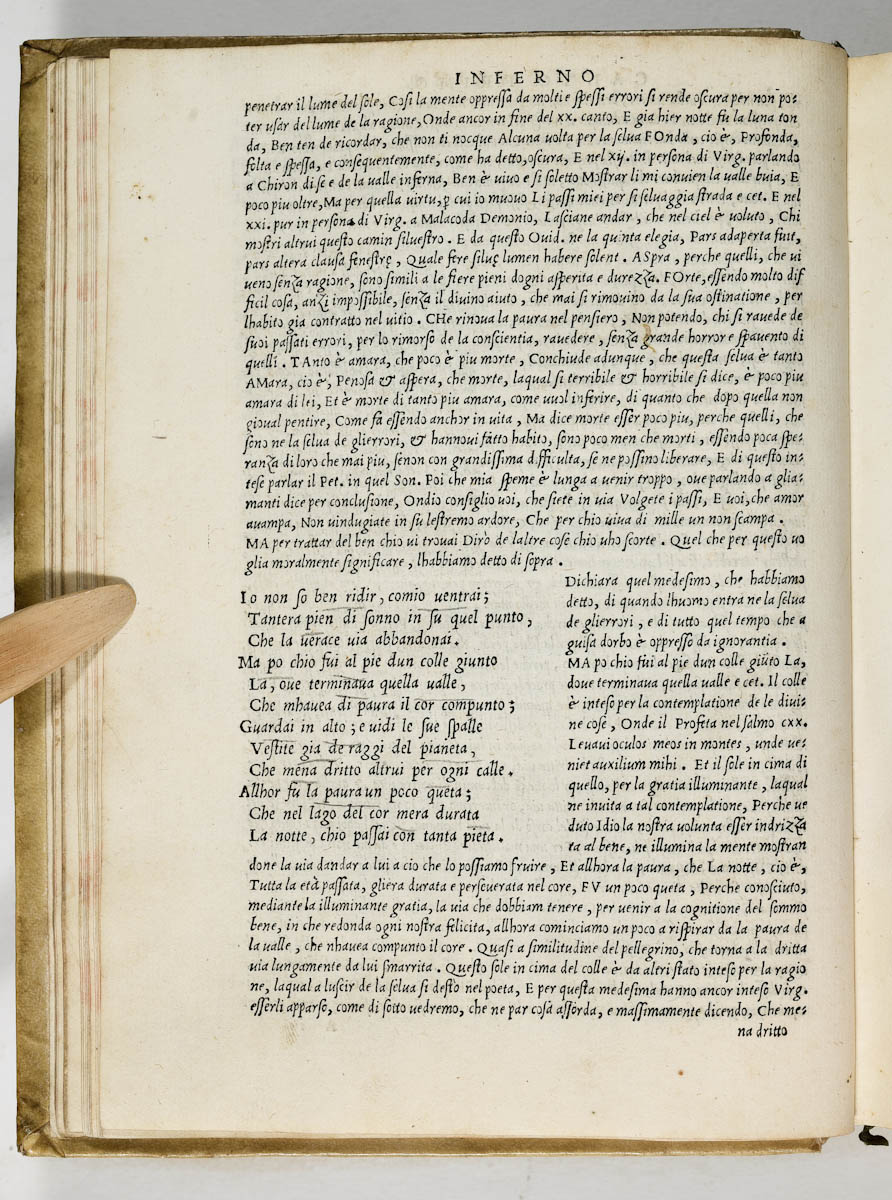 INFERNO
penetrar il lume del sole, Cosi la mente oppressa da molti e spessi errori si rende oscura per non po-
ter usar del lume de la ragione, Onde ancor in fine del xx. canto, E gia hier notte fu la luna ton
da, Ben ten de ricordar, che non ti nocque Alcuna uolta per la selua FOnda, cio è, Profonda,
folta e spessa, e consequentemente, come ha detto, oscura, E nel xij. in persona di Virg. parlando
a Chiron di se e de la ualle inferna, Ben è uiuo e si soletto Mostrar li mi conuien la ualle buia, E
poco piu oltre, Ma per quella uirtu, ꝑ cui io muouo Li passi miei per si seluaggia strada e cet. E nel
xxi. pur in persona di Virg. a Malacoda Demonio, Lasciane andar, che nel ciel è uoluto, Chi
mostri altrui questo camin siluestro. E da questo Ouid. ne la quinta elegia, Pars adaperta fuit,
pars altera clausa fenestrę, Quale fere siluę lumen habere solent. ASpra, perche quelli, che ui
ueno senza ragione, sono simili a le fiere pieni dogni asperita e durezza. FOrte, essendo molto dif
ficil cosa, anzi impossibile, senza il diuino aiuto, che mai si rimouino da la sua ostinatione, per
lhabito gia contratto nel uitio. CHe rinoua la paura nel pensiero, Non potendo, chi si rauede de
suoi passati errori, per lo rimorso de la conscientia, rauedere, senza grande horror e spauento di
quelli. TAnto è amara, che poco è piu morte, Conchiude adunque, che questa selua è tanto
AMara, cio è, Penosa & aspera, che morte, laqual si terribile & horribile si dice, è poco piu
amara di lei, Et è morte di tanto piu amara, come uuol inferire, di quanto che dopo quella non
gioual pentire, Come fa essendo anchor in uita, Ma dice morte esser poco piu, perche quelli, che
sono ne la selua de glierrori, & hannoui fatto habito, sono poco men che morti, essendo poca spe-
ranza di loro che mai piu, senon con grandissima difficulta, se ne possino liberare, E di questo in-
tese parlar il Pet. in quel Son. Poi che mia speme è lunga a uenir troppo, oue parlando a glia-
manti dice per conclusione, Ondio consiglio uoi, che siete in uia Volgete i passi, E uoi, che amor
auampa, Non uindugiate in su lestremo ardore, Che per chio uiua di mille un non scampa.
MA per trattar del ben chio ui trouai Dirò de laltre cose chio uho scorte. Quel che per questo uo
glia moralmente significare, lhabbiamo detto di sopra.
Io non so ben ridir, comio uentrai;
Tantera pien di sonno in su quel punto,
Che la uerace uia abbandonai.
Ma po chio fui al pie dun colle giunto
La, oue terminaua quella ualle,
Che mhauea di paura il cor compunto;
Guardai in alto; e uidi le sue spalle
Vestite gia de raggi del pianeta,
Che mena dritto altrui per ogni calle.
Allhor fu la paura un poco queta;
Che nel lago del cor mera durata
La notte, chio passai con tanta pieta.
Dichiara quel medesimo, che habbiamo
detto, di quando lhuomo entra ne la selua
de glierrori, e di tutto quel tempo che a
guisa dorbo è oppresso da ignorantia.
MA po chio fui al pie dun colle giũto La,
doue terminaua quella ualle e cet. Il colle
è inteso per la contemplatione de le diui-
ne cose, Onde il Profeta nel salmo cxx.
Leuaui oculos meos in montes, unde ue-
niet auxilium mihi. Et il sole in cima di
quello, per la gratia illuminante, laqual
ne inuita a tal contemplatione, Perche ue
duto Idio la nostra uolunta esser indrizza
ta al bene, ne illumina la mente mostran
done la uia dandar a lui a cio che lo possiamo fruire, Et allhora la paura, che La notte, cio è,
Tutta la età passata, gliera durata e perseuerata nel core, FV un poco queta, Perche conosciuto,
mediante la illuminante gratia, la uia che dobbiam tenere, per uenir a la cognitione del sommo
bene, in che redonda ogni nostra felicita, allhora cominciamo un poco a rispirar da la paura de
la ualle, che nhauea compunto il core. Quasi a similitudine del pellegrino, che torna a la dritta
uia lungamente da lui smarrita. Questo sole in cima del colle è da altri stato inteso per la ragio
ne, laqual a luscir de la selua si destò nel poeta, E per questa medesima hanno ancor inteso Virg.
esserli apparso, come di sotto uedremo, che ne par cosa assorda, e massimamente dicendo, Che me-
na dritto